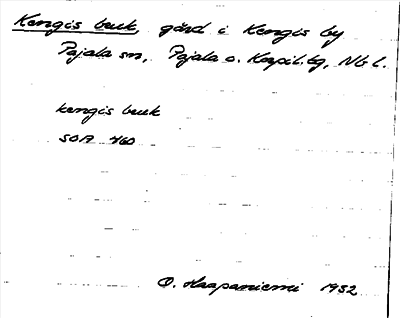 Kengis bruk, gård i Kengis by
Pajala sn, Pajala o. Korpil. tg, Nb l.
kengis bruk
SOA 460
O. Haapaniemi 1932